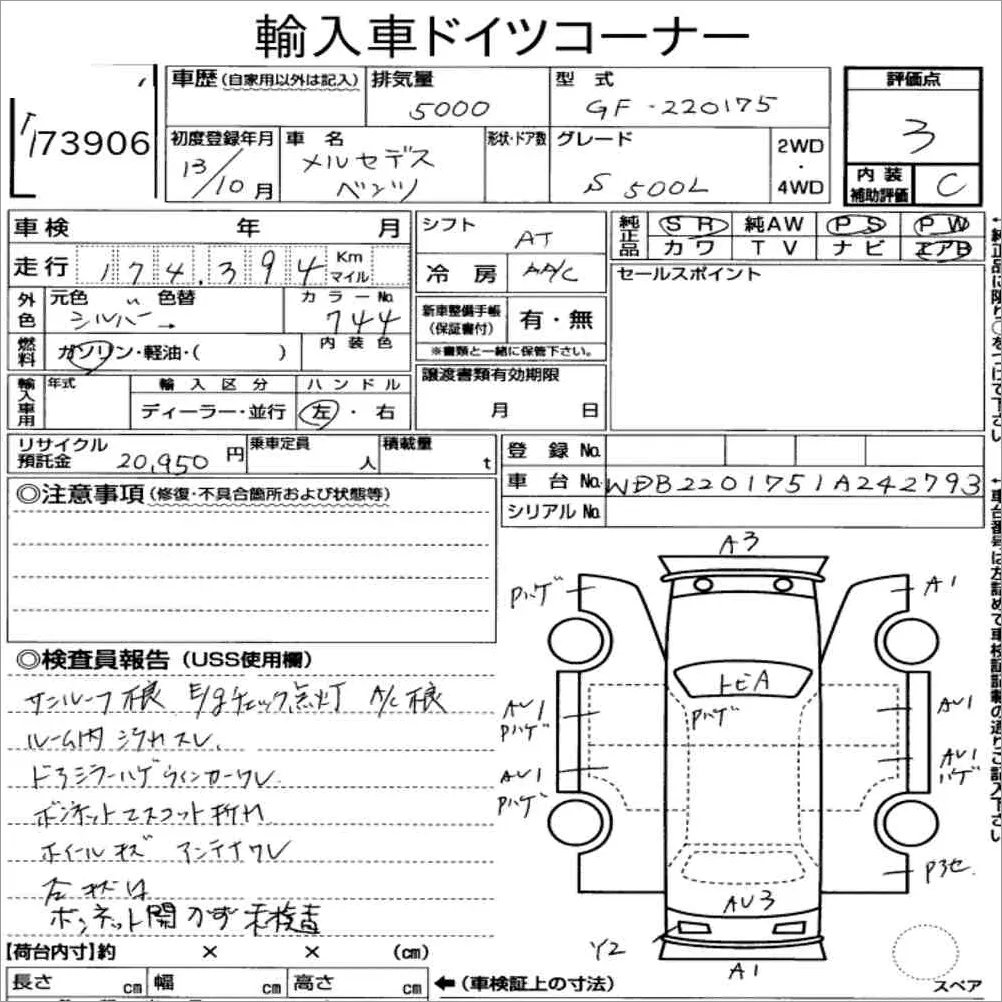 輸入車ドイツコーナー
73906
車歴(自家用以外は記入) 排気量 型式 評価点
5000 GF-220175 3
初度登録年月 車名 形状・ドア数 グレード 2WD・4WD
13/10月 メルセデスベンツ S500L
内装補助評価 C
車検 年 月 シフト AT
純正品 SR 純AW PS PW
カワ TV ナビ エアB
走行 174,394 Kmマイル 冷房 AA/C
セールスポイント
外色 元色 〃 色替 カラーNo.
シルバー→ 744
新車整備手帳(保証書付) 有・無
※書類と一緒に保管下さい。
燃料 ガソリン・軽油・( ) 内装色
輸入車用 年式 輸入区分 ハンドル
ディーラー・並行 左・右
譲渡書類有効期限
月 日
リサイクル預託金 20,950円 乗車定員 人 積載量 t
登録No.
車台No. WDB2201751A242793
シリアルNo.
←純正品に限り○をつけて下さい
←車台番号は左詰めで車検証記載の通りご記入下さい
◎注意事項(修復・不具合箇所および状態等)
◎検査員報告(USS使用欄)
サンルーフ不良 E/gチェック点灯 A/C不良
ルーム内 ヨゴレスレ
ドアミラーハゲ ウィンカーワレ
ボンネットマスコット折れ
ホイールキズ アンテナワレ
ボンネット開かず 未検査
A3
Pハゲ A1
トビA
Pハゲ
AU1 Pハゲ AU1
AU1 Pハゲ AU1 ハゲ
AU3
Y2
A1
【荷台内寸】約 × × (cm)
長さ cm 幅 cm 高さ cm ←(車検証上の寸法)
スペア